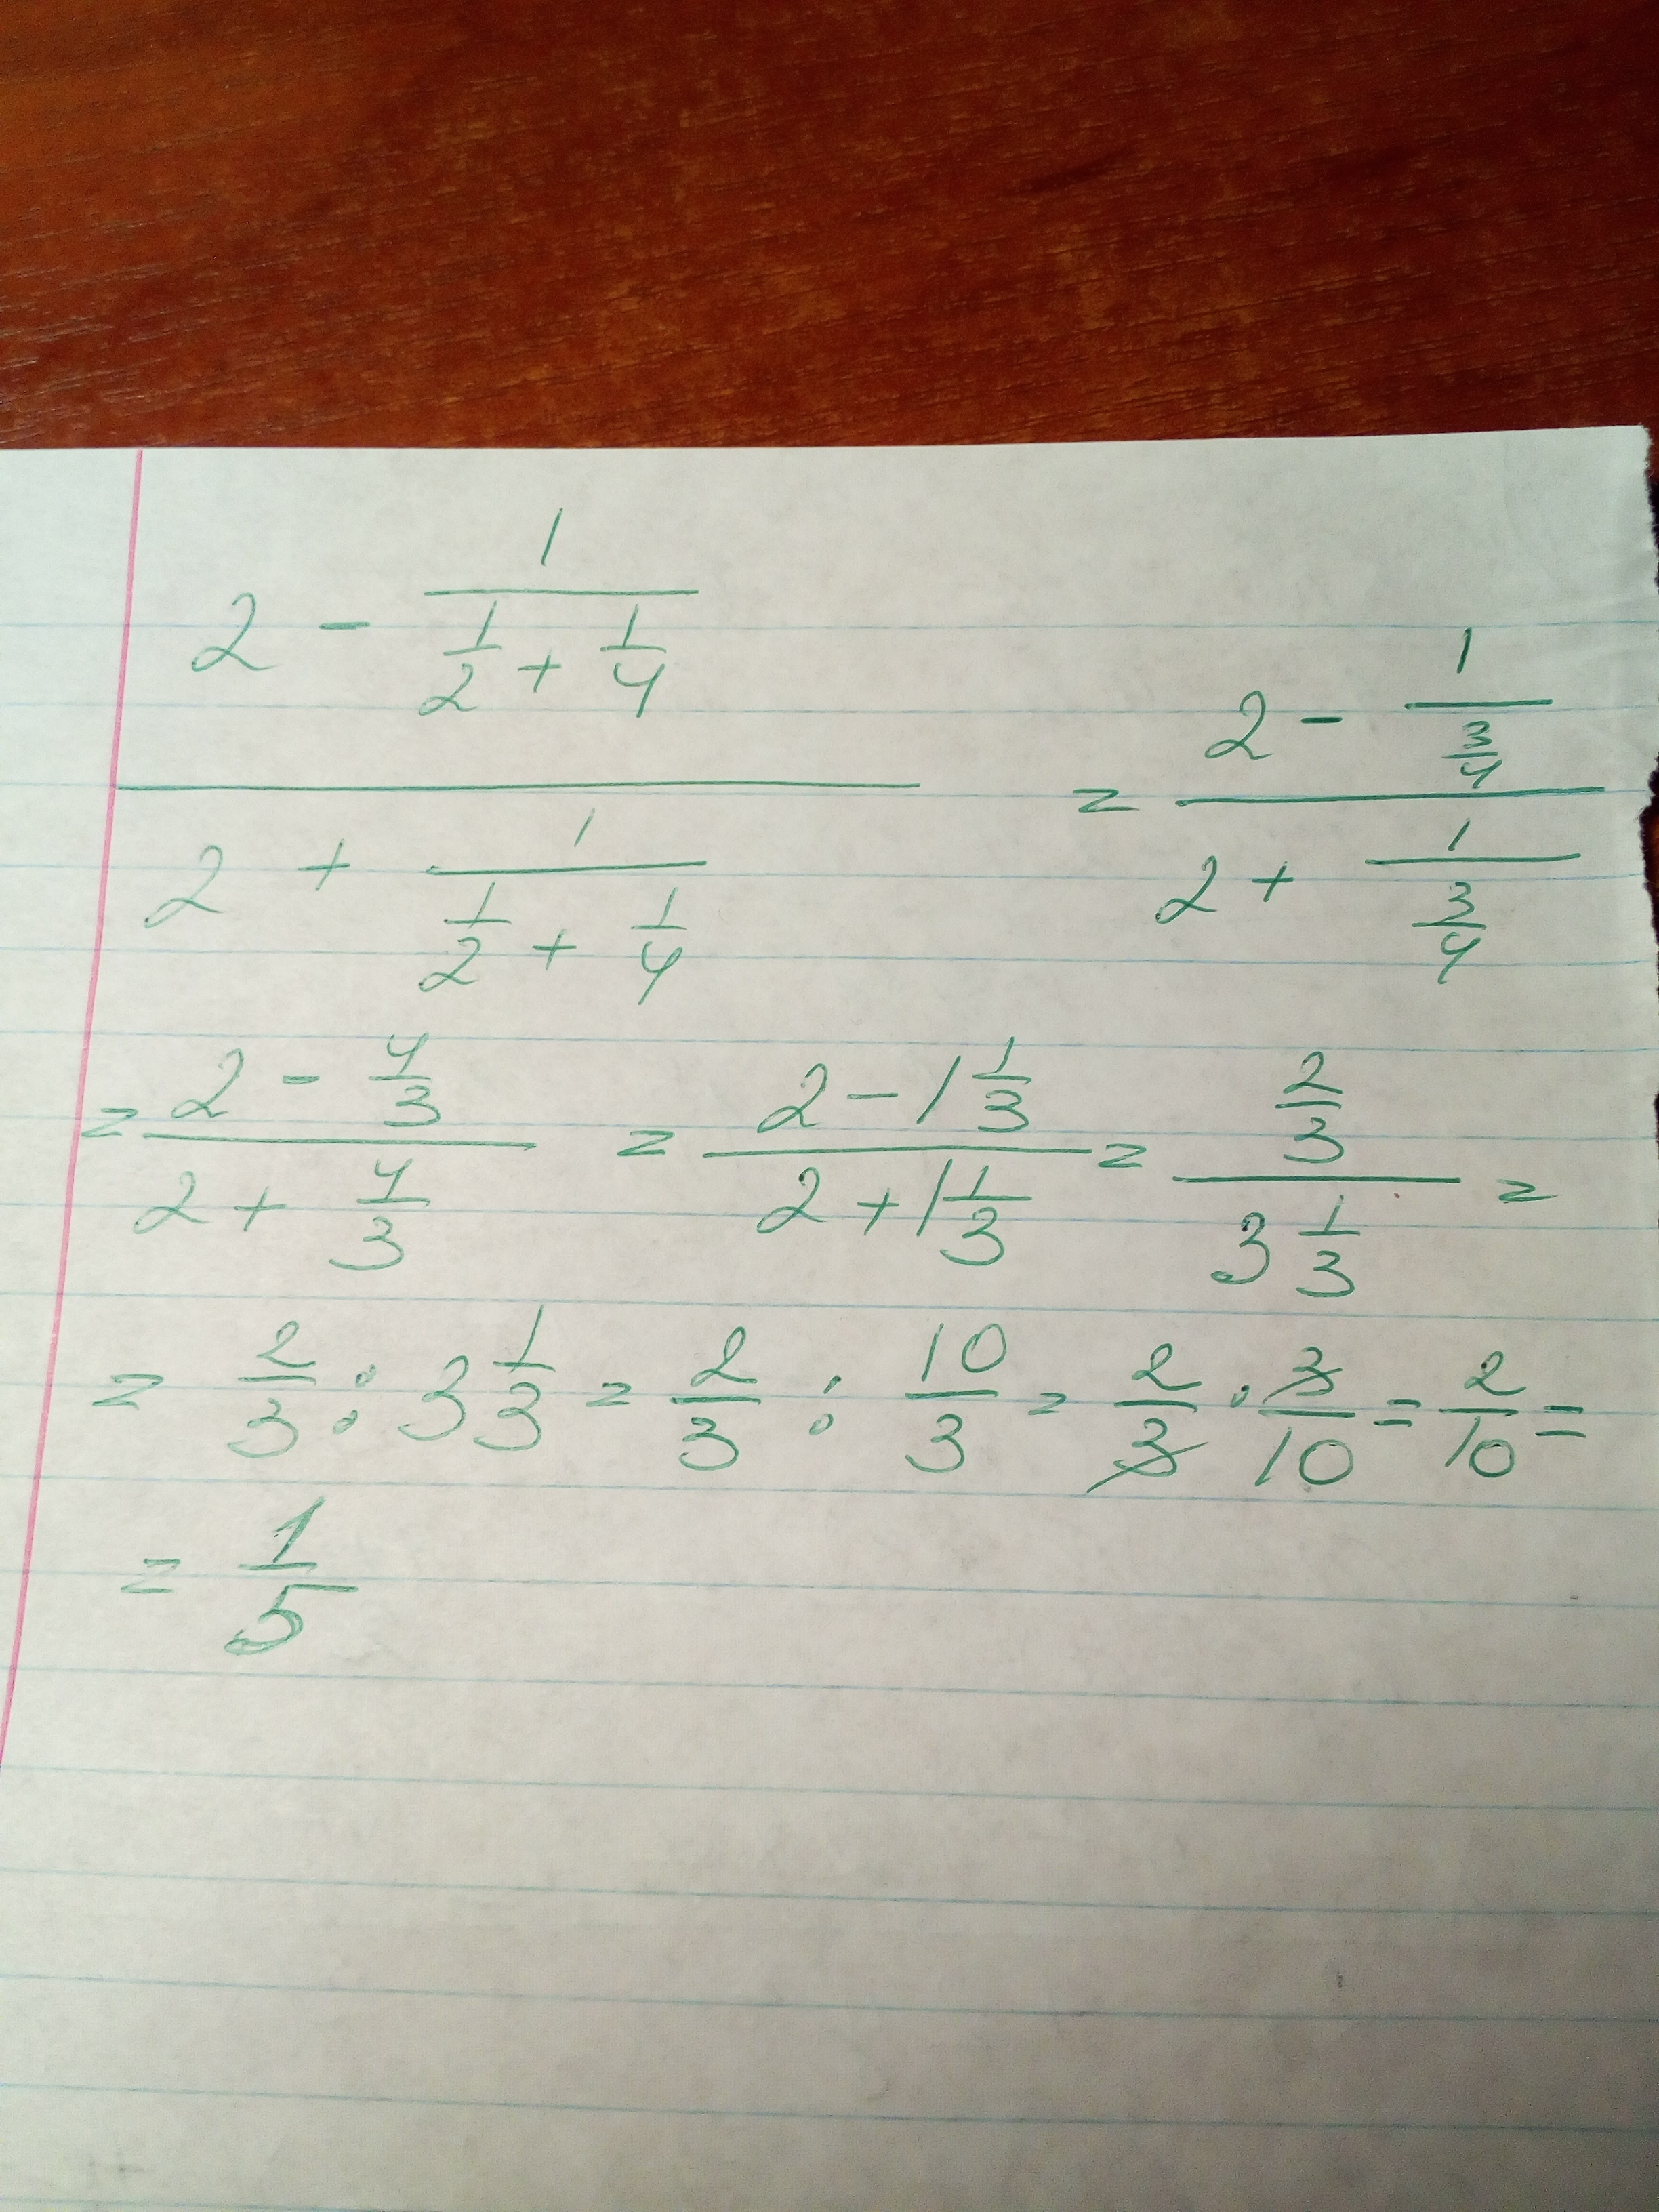 2 - 1/(1/2 + 1/4)
/ 2 + 1/(1/2 + 1/4)
= (2 - 1/(3/4)) / (2 + 1/(3/4))
= (2 - 4/3) / (2 + 4/3) = (2 - 1 1/3) / (2 + 1 1/3) = (2/3) / (3 1/3) =
= 2/3 : 3 1/3 = 2/3 : 10/3 = 2/3 · 3/10 = 2/10 =
= 1/5